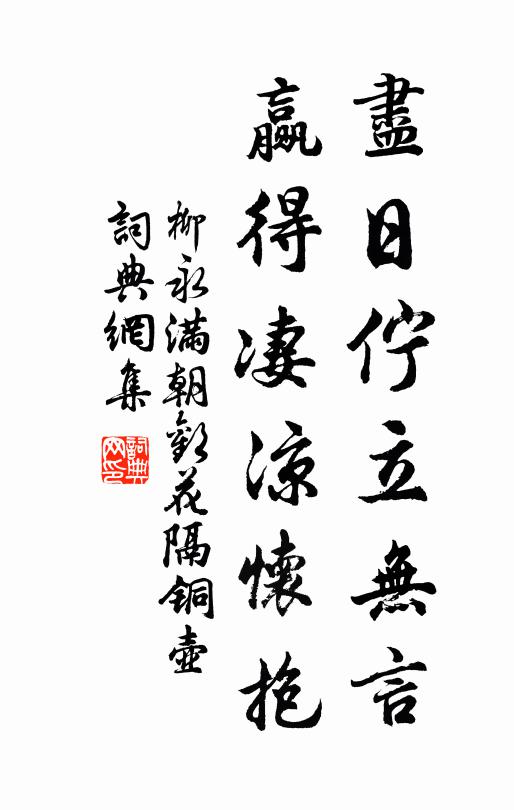 盡日佇立無言
贏得淒涼懷抱
柳永滿朝歡花隔铜壺
詞典網集
詞典网印